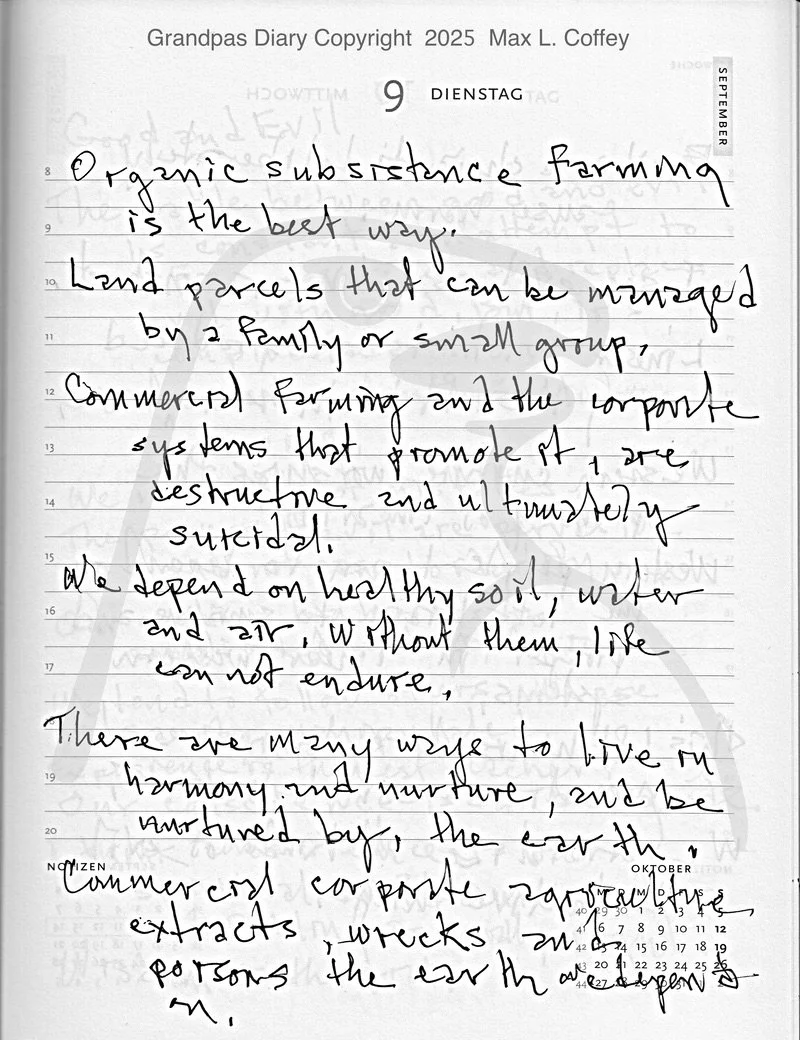 Grandpas Diary Copyright 2025 Max L. Coffey
9 DIENSTAG
SEPTEMBER
8 Organic subsistance farming
9 is the best way.
10 Land parcels that can be managed
11 by a family or small group.
12 Commercial farming and the corporate
13 systems that promote it, are
14 destructive and ultimately
suicidal.
15 We depend on healthy soil, water
16 and air. Without them, life
17 can not endure.
There are many ways to live in
19 harmony and nurture, and be
20 nurtured by, the earth.
NOTIZEN
OKTOBER
Commercial corporate agriculture
extracts, wrecks and
poisons the earth we depend
on.
M D M D F S S
40 29 30 1 2 3 4 5
41 6 7 8 9 10 11 12
42 14 15 16 17 18 19
43 20 21 22 23 24 25 26
44 27 28 29 30